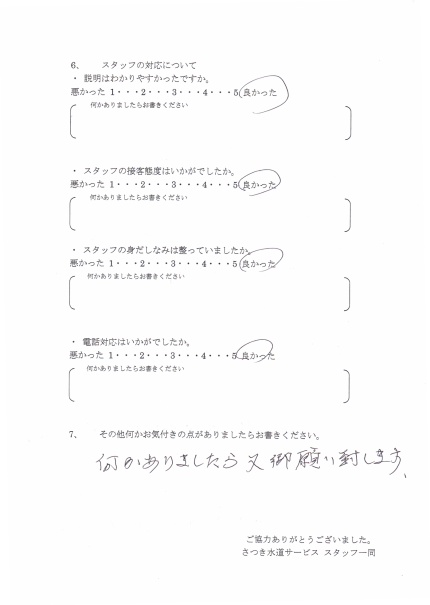 6、 スタッフの対応について
・ 説明はわかりやすかったですか。
悪かった 1・・・2・・・3・・・4・・・5 良かった
何かありましたらお書きください
・ スタッフの接客態度はいかがでしたか。
悪かった 1・・・2・・・3・・・4・・・5 良かった
何かありましたらお書きください
・ スタッフの身だしなみは整っていましたか。
悪かった 1・・・2・・・3・・・4・・・5 良かった
何かありましたらお書きください
・ 電話対応はいかがでしたか。
悪かった 1・・・2・・・3・・・4・・・5 良かった
何かありましたらお書きください
7、 その他何かお気付きの点がありましたらお書きください。
何かありましたら又御願い封します、
ご協力ありがとうございました。
さつき水道サービス スタッフ一同